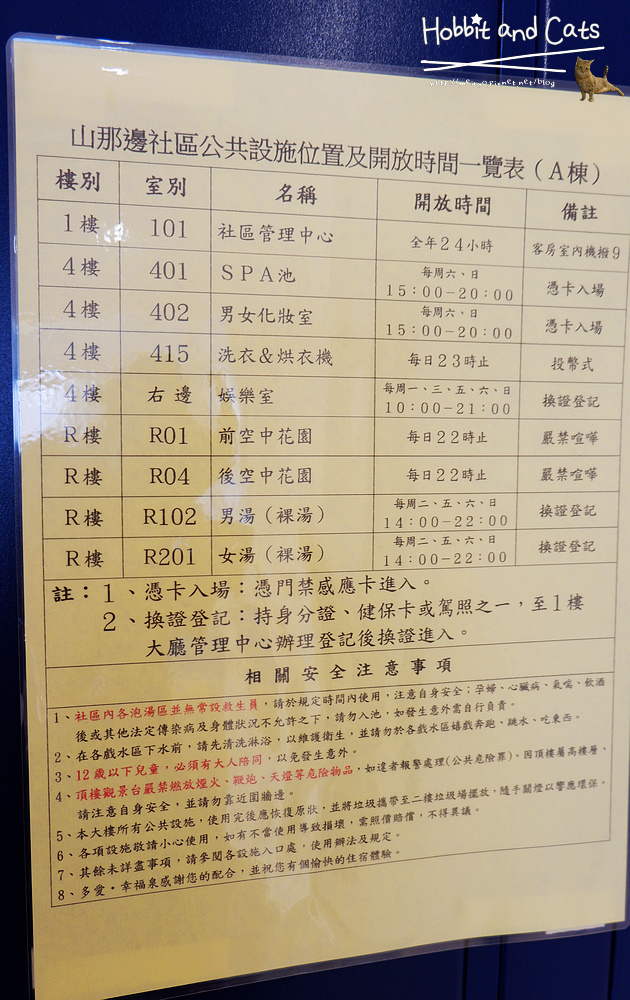 Hobbit and Cats
山那邊社區公共設施位置及開放時間一覽表（A棟）
樓別 室別 名稱 開放時間 備註
1樓 101 社區管理中心 全年24小時 客房室內機撥9
4樓 401 SPA池 每周六、日 15：00-20：00 憑卡入場
4樓 402 男女化妝室 每周六、日 15：00-20：00 憑卡入場
4樓 415 洗衣&烘衣機 每日23時止 投幣式
4樓 右邊 娛樂室 每周一、三、五、六、日 10：00-21：00 換證登記
R樓 R01 前空中花園 每日22時止 嚴禁喧嘩
R樓 R04 後空中花園 每日22時止 嚴禁喧嘩
R樓 R102 男湯（裸湯） 每周二、五、六、日 14：00-22：00 換證登記
R樓 R201 女湯（裸湯） 每周二、五、六、日 14：00-22：00 換證登記
註：1、憑卡入場：憑門禁感應卡進入。
2、換證登記：持身分證、健保卡或駕照之一，至1樓
大廳管理中心辦理登記後換證進入。
相關安全注意事項
1、社區內各泡湯區並無常設救生員，請於規定時間內使用，注意自身安全；孕婦、心臟病、氣喘、飲酒
後或其他法定傳染病及身體狀況不允許之下，請勿入池，如發生意外需自行負責。
2、在各戲水區下水前，請先清洗淋浴，以維護衛生，並請勿於各戲水區嬉戲奔跑、跳水、吃東西。
3、12歲以下兒童，必須有大人陪同，以免發生意外。
4、頂樓觀景台嚴禁燃放煙火、鞭炮、天燈等危險物品，如違者報警處理(公共危險罪)。因頂樓屬高樓層，
請注意自身安全，並請勿靠近圍牆邊。
5、本大樓所有公共設施，使用完後應恢復原狀，並將垃圾攜帶至二樓垃圾場擺放，隨手關燈以響應環保。
6、各項設施敬請小心使用，如有不當使用導致損壞，需照價賠償，不得異議。
7、其餘未詳盡事項，請參閱各設施入口處，使用辦法及規定。
8、多愛・幸福泉感謝您的配合，並祝您有個愉快的住宿體驗。